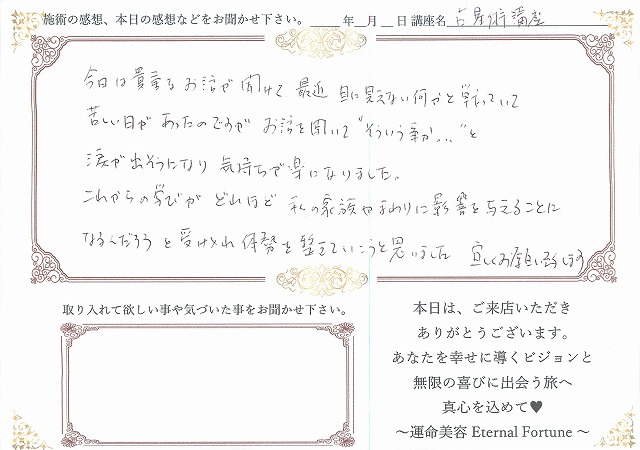 施術の感想、本日の感想などをお聞かせ下さい。 ____ 年__月__日 講座名 占星術講座
今日は貴重なお話が聞けて 最近 目に見えない何かと戦っていて
苦しい日があったのですが お話を聞いて"そういう事か..."と
涙が出そうになり 気持ちが楽になりました。
これからの学びが どれほど 私の家族やまわりに影響を与えることに
なるんだろう と受け入れ体勢を整えていこうと思いました 宜しくお願い致します
取り入れて欲しい事や気づいた事をお聞かせ下さい。
本日は、ご来店いただき
ありがとうございます。
あなたを幸せに導くビジョンと
無限の喜びに出会う旅へ
真心を込めて♥
～運命美容 Eternal Fortune ～